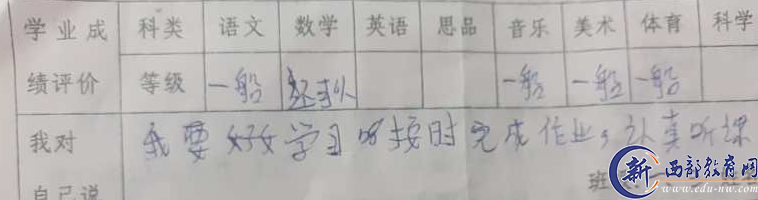 学业成 科类 语文 数学 英语 思品 音乐 美术 体育 科学
绩评价 等级 一船 一船 一船 一船
我对 我要好好学习 按时完成作业，认真听课
自己说 班
新 西部教育网
www.edu-nw.com